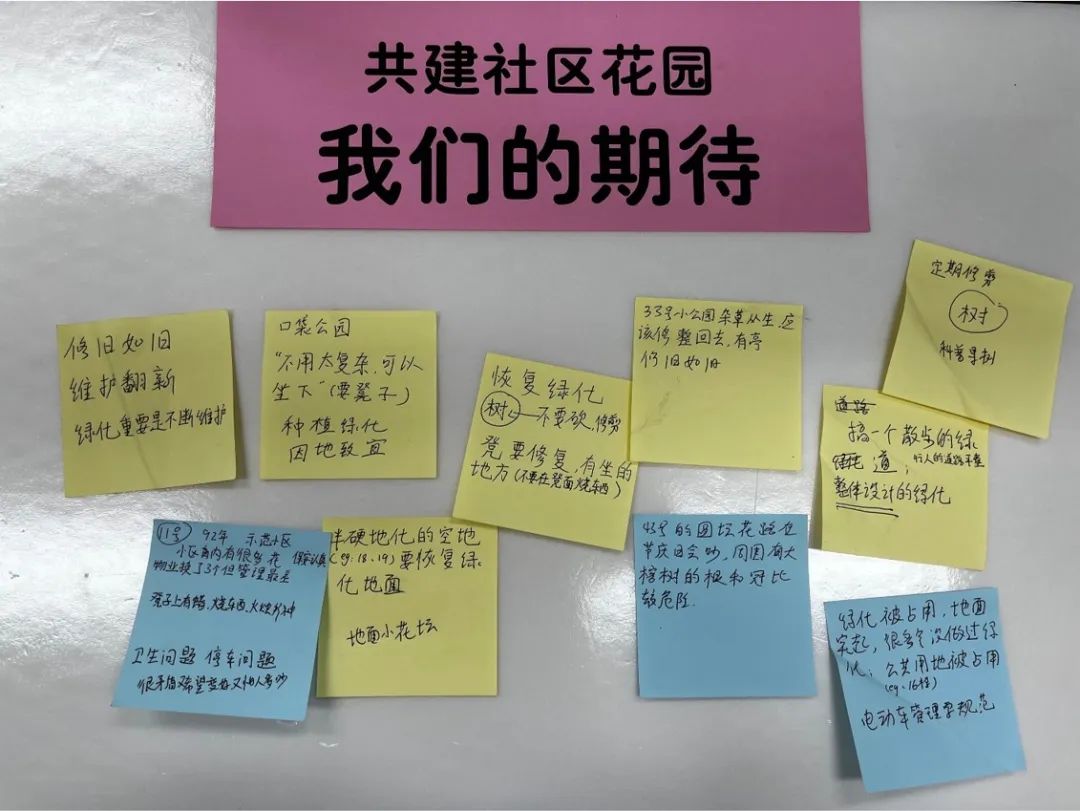 共建社区花园
我们的期待
修旧如旧
维护翻新
绿化重要是不断维护
口袋公园
“不用太复杂,可以
坐下”(要凳子)
种植绿化
因地致宜
恢复绿化
树 不要砍,修剪
凳要修复,有坐的
地方(不要在凳面烧东西)
33号小公园杂草从生,应
该修整回去,有亭
修旧如旧
定期修剪
树
道路
搞一个散步的绿
道,
行人的道路平整
整体设计的绿化
11号 92年 示范小区
小区角内有很多花 保安认真
物业换了3个但管理最差
凳子上有蜡,烧东西,火烛
卫生问题 停车问题
很矛盾 希望变好又怕人多吵
半硬地化的空地
(eg:18、19)要恢复绿
化地面
地面小花坛
43号的圆坛花路边
节庆日会吵,周围有大
榕树的根和冠比
较危险.
绿化被占用,地面
突起,很多个没做过绿
化,公共用地被占用
(eg、16栋)
电动车管理要规范